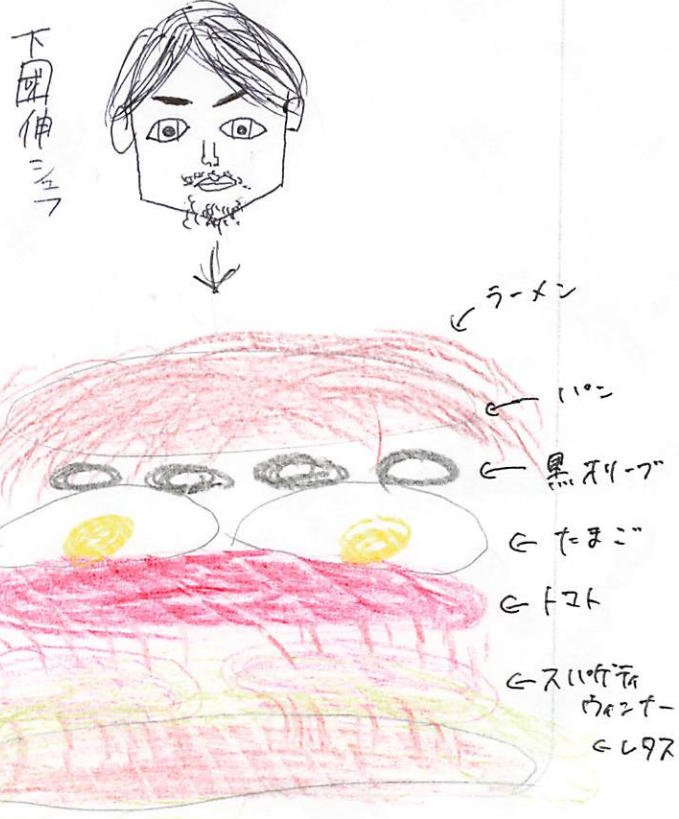 下國伸シェフ
ラーメン
パン
黒オリーブ
たまご
トマト
スパゲティ
ウィンナー
レタス